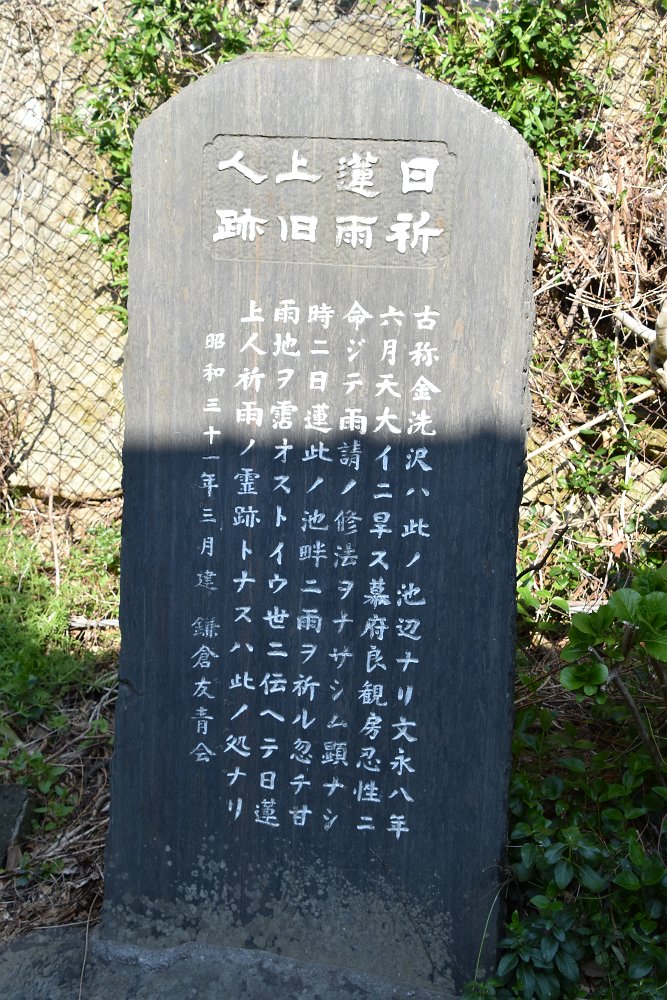 日蓮上人
祈雨旧跡
古称金洗沢ハ此ノ池辺ナリ文永八年
六月天大イニ旱ス幕府良観房忍性ニ
命ジテ雨請ノ修法ヲナサシム顕ナシ
時ニ日蓮此ノ池畔ニ雨ヲ祈ル忽チ甘
雨地ヲ霑オストイウ世ニ伝ヘテ日蓮
上人祈雨ノ霊跡トナスハ此ノ処ナリ
昭和三十一年三月建 鎌倉友青会